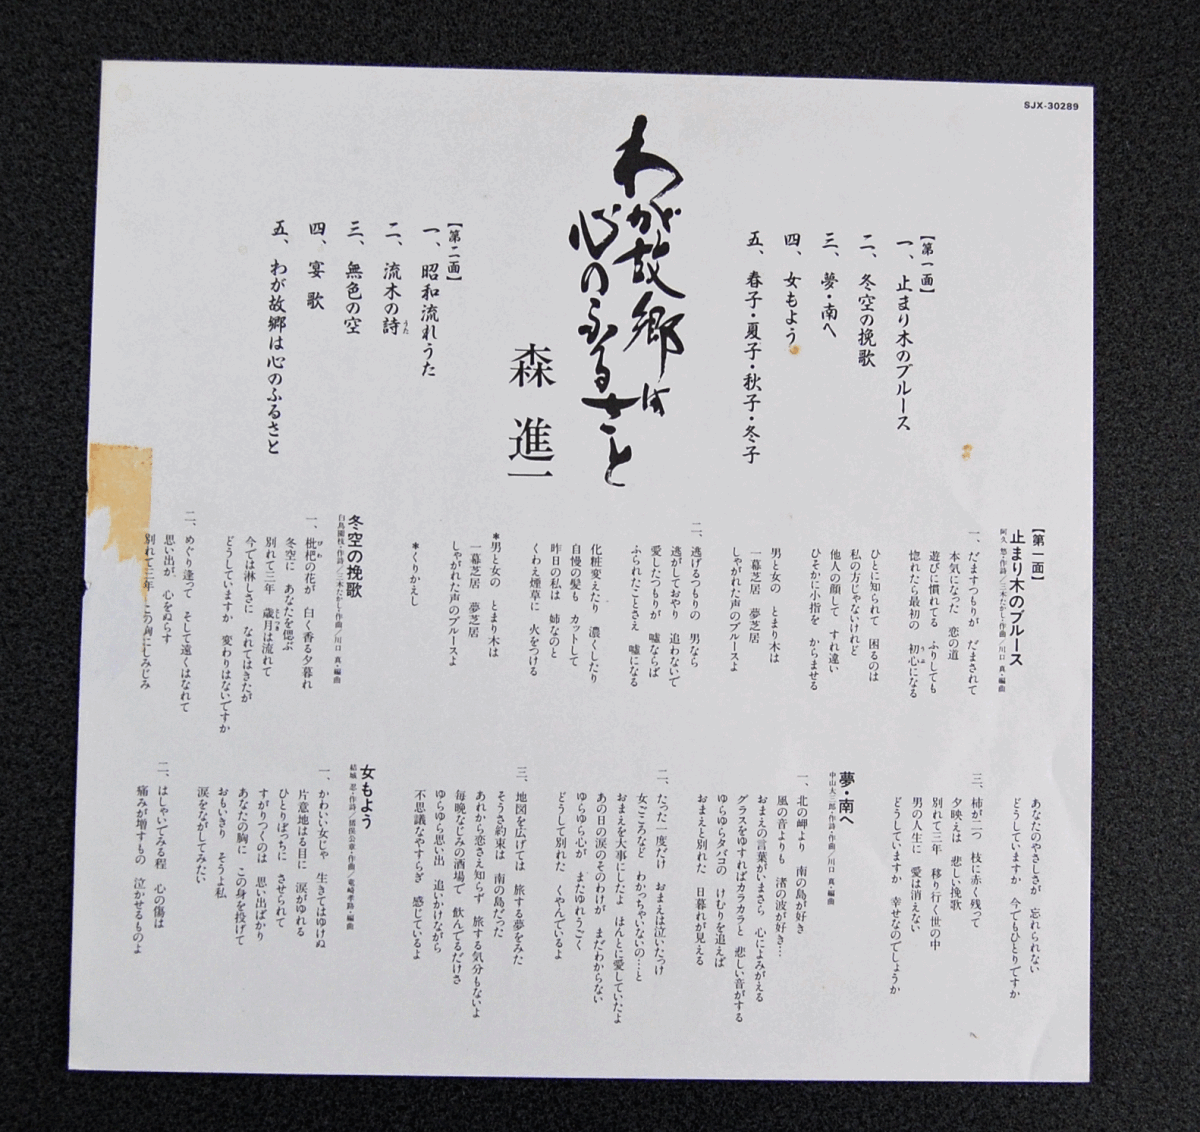 SJX-30289
わが故郷は
心のふるさと
森 進一
【第一面】
一、止まり木のブルース
二、冬空の挽歌
三、夢・南へ
四、女もよう
五、春子・夏子・秋子・冬子
【第二面】
一、昭和流れうた
二、流木の詩
うた
三、無色の空
四、宴歌
五、わが故郷は心のふるさと
【第一面】
止まり木のブルース
阿久 悠・作詩/三木たかし・作曲/川口 真・編曲
一、だますつもりが だまされて
本気になった 恋の道
遊びに慣れてる ふりしても
惚れたら最初の 初心になる
うぶ
ひとに知られて 困るのは
私の方じゃないけれど
他人の顔して すれ違い
ひそかに小指を からませる
男と女の とまり木は
一幕芝居 夢芝居
しゃがれた声のブルースよ
二、逃げるつもりの 男なら
逃がしておやり 追わないで
愛したつもりが 嘘ならば
ふられたことさえ 嘘になる
化粧変えたり 濃くしたり
自慢の髪も カットして
昨日の私は 姉なのと
くわえ煙草に 火をつける
*男と女の とまり木は
一幕芝居 夢芝居
しゃがれた声のブルースよ
*くりかえし
冬空の挽歌
白鳥園枝・作詩/三木たかし・作曲/川口 真・編曲
一、枇杷の花が 白く香る夕暮れ
びわ
冬空に あなたを偲ぶ
別れて三年 歳月は流れて
としつき
今では淋しさに なれてはきたが
どうしていますか 変わりはないですか
二、めぐり逢って そして遠くはなれて
思い出が、心をぬらす
別れて三年 この胸にしみじみ
あなたのやさしさが 忘れられない
どうしていますか 今でもひとりですか
三、柿が二つ 枝に赤く残って
夕映えは 悲しい挽歌
別れて三年 移り行く世の中
男の人生に 愛は消えない
どうしていますか 幸せなのでしょうか
夢・南へ
中山大三郎・作詩・作曲/川口 真・編曲
一、北の岬より 南の島が好き
風の音よりも 渚の波が好き…
おまえの言葉がいまさら 心によみがえる
グラスをゆすればカラカラと 悲しい音がする
ゆらゆらタバコの けむりを追えば
おまえと別れた 日暮れが見える
二、たった一度だけ おまえは泣いたっけ
女ごころなど わかっちゃいないの…と
おまえを大事にしたよ ほんとに愛していたよ
あの日の涙のそのわけが まだわからない
ゆらゆら心が またゆれうごく
どうして別れた くやんでいるよ
三、地図を広げては 旅する夢をみた
そうさ約束は 南の島だった
あれから恋さえ知らず 旅する気分もないよ
毎晩なじみの酒場で 飲んでるだけさ
ゆらゆら思い出 追いかけながら
不思議なやすらぎ 感じているよ
女もよう
結城 忍・作詩/猪俣公章・作曲/竜崎孝路・編曲
一、かわいい女じゃ 生きてはゆけぬ
片意地はる目に 涙がゆれる
ひとりぼっちに させられて
すがりつくのは 思い出ばかり
あなたの胸に この身を投げて
おもいきり そうよ私
涙をながしてみたい
二、はしゃいでみる程 心の傷は
痛みが増すもの 泣かせるものよ